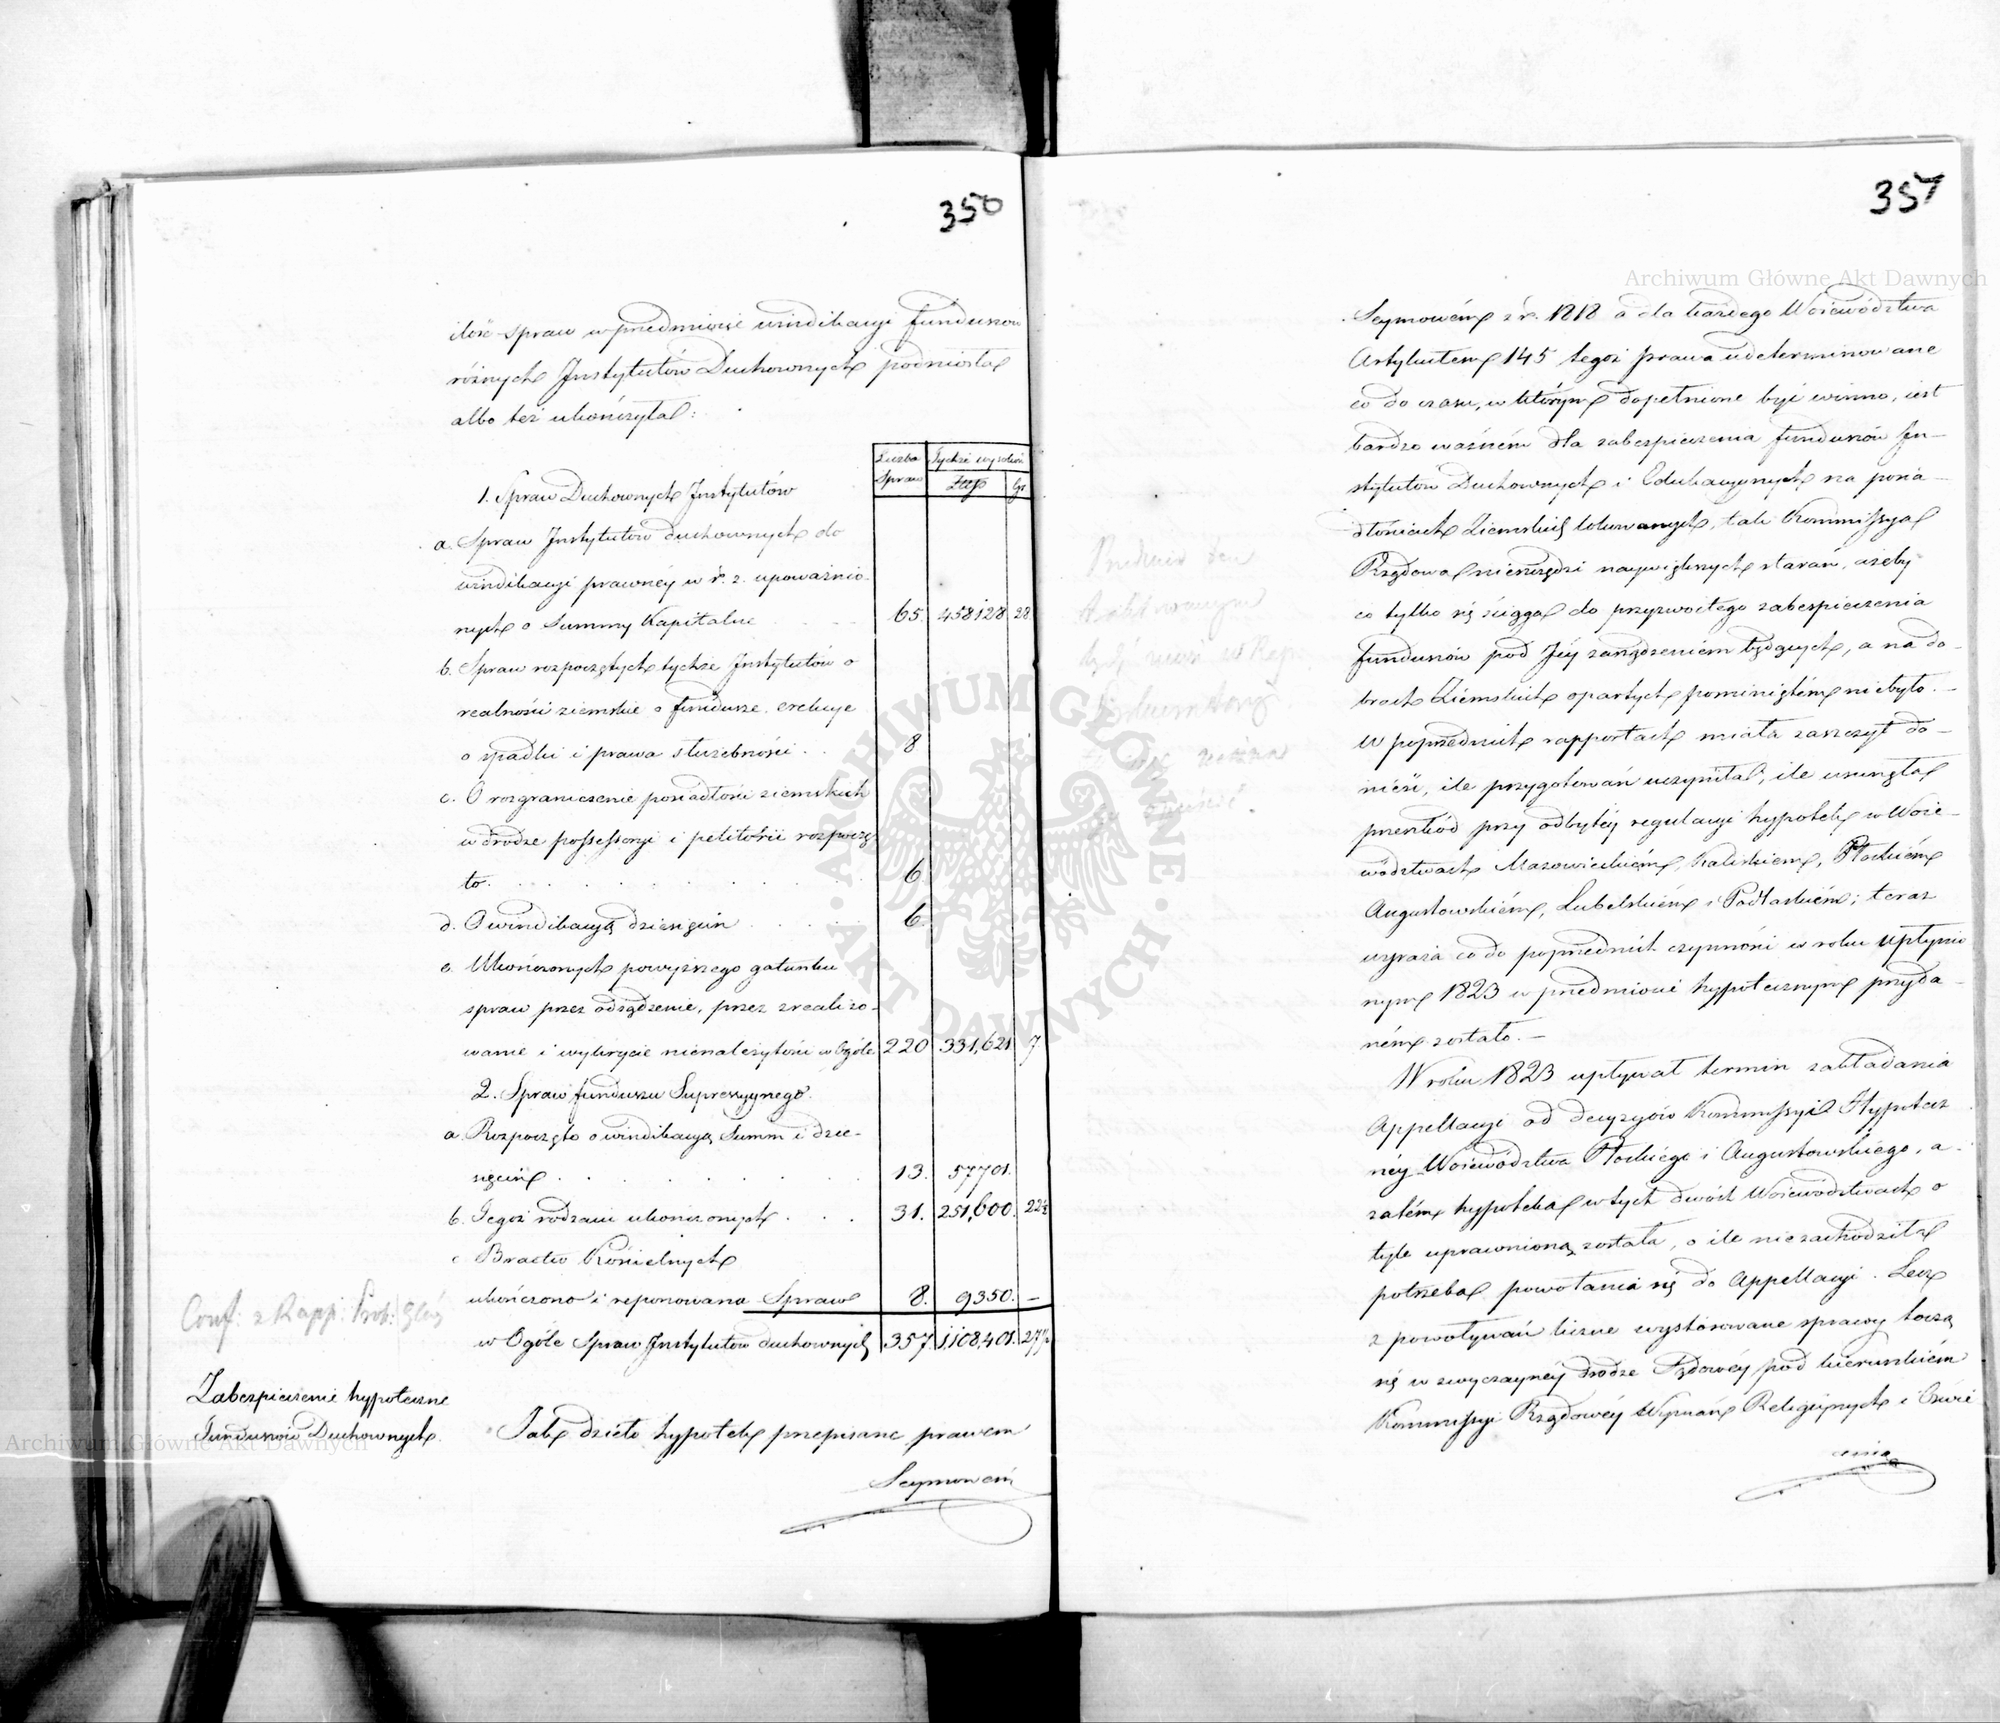 350
ilość spraw w przedmiocie windikacyi funduszów
różnych Instytutów Duchownych podniosła
albo też ukończyła:
Liczba Spraw
Tychże wysokość
Złłp gr
1. Spraw Duchownych Instytutów
a. Spraw Instytutów duchownych do
windikacyi prawnéy w r. z. upoważnio-
nych o Summy Kapitalne 65. 458128 28
b. Spraw rozpoczętych tychże Instytutów o
realności ziemskie o fundusze erekcye
o spadki i prawa służebności . . 8
c. O rozgraniczenie posiadłości ziemskich
w drodze possessoryi i petitorii rozpoczę-
to . . . 6
d. O windikacyą dziesięcin . . . 6
e. Ukończonych powyższego gatunku
spraw przez odsądzenie, przez zrealizo-
wanie i wykrycie nienależytości w Ogóle 220 331,621 7
2. Spraw funduszu Supressyynego.
a. Rozpoczęto o windikacyą Summ i dzie-
sięcin . . . 13. 57701.
b. Tegoż rodzaiu ukończonych . . . 31. 251,600. 22½
c. Bractw Kościelnych
ukończono i reponowano Spraw 8. 9350. —
w Ogóle Spraw Instytutów duchownych 357. 1,108,401. 27½
Conf: z Rapp:
Zabezpieczenie hypoteczne
Funduszów Duchownych.
Jak dzieło hypotek przepisane prawem
Seymowém
357
Seymowém z r. 1818 a dla każdego Woiewództwa
Artykułem 145 tegoż prawa udeterminowane
co do czasu, w którym dopełnione być winno, iest
bardzo ważném dla zabezpieczenia funduszów In-
stytutów Duchownych i Edukacyynych na posia-
dłościach Ziemskich lokowanych, tak Kommissya
Rządowa nieszczędzi naywiększych starań, ażeby
co tylko się ściąga do przyzwoitego zabezpieczenia
funduszów pod Jéy zarządzeniem będących, a na do-
brach Ziemskich opartych pominiętém niebyło. —
W poprzednich rapportach miała zaszczyt do-
nieść, ile przygotowań uczyniła, ile usunęła
przeszkód przy odbytéy regulacyi hypotek w Woie-
wództwach Mazowieckiém, Kaliskiem, Płockiém
Augustowskiém, Lubelskiém i Podlaskiém; teraz
wyraża co do poprzednich czynności w roku upłynio
nym 1823 w przedmiocie hypotecznym przyda-
ném zostało. —
W roku 1823 upływał termin zakładania
Appellacyi od decyzyów Kommissyi Hypotecz
néy Woiewództwa Płockiego i Augustowskiego, a
zatém hypoteka w tych dwóch Woiewództwach o
tyle uprawnioną została, o ile niezachodziła
potrzeba powołania się do Appellacyi. Lecz
z powoływań liczne wystosowane sprawy toczą
się w zwyczayney drodze Sądowéy pod kierunkiém
Kommissyi Rządowéy Wyznań Religiynych i Oświe
cenia
Archiwum Główne Akt Dawnych
Archiwum Główne Akt Dawnych
ARCHIWUM GŁÓWNE AKT DAWNYCH